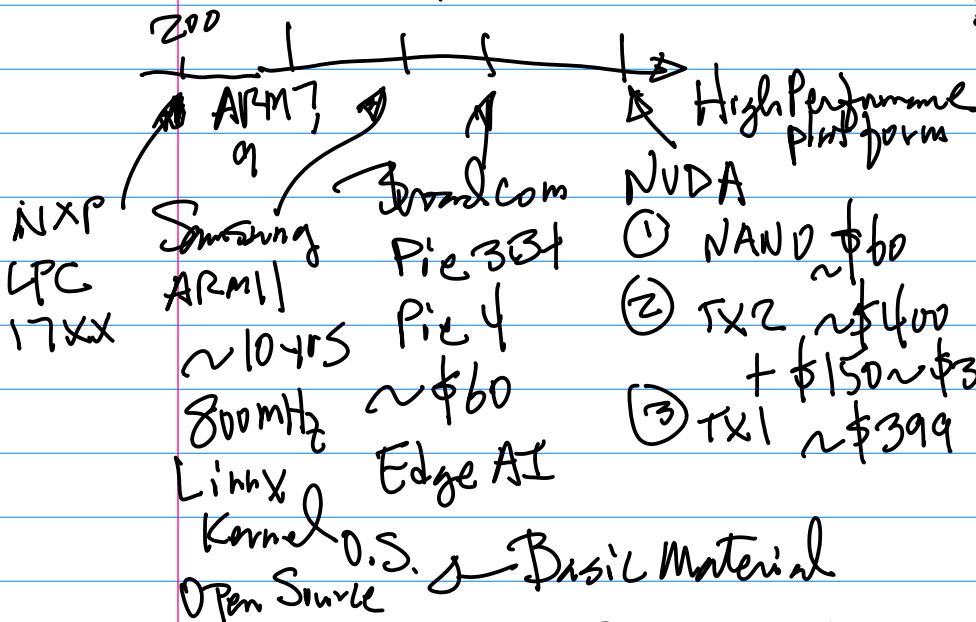 200
ARM7,
9
High Performance
platform
NXP
LPC
17XX
Samsung
ARM11
~10yrs
800mHz
Linnx
Kernel O.S.
Open Source
Broadcom
Pie 3B+
Pie 4
~$60
Edge AI
NVDA
① NANO ~$60
② TX2 ~$400
+ $150~$3
③ TX1 ~$399
Basic Material